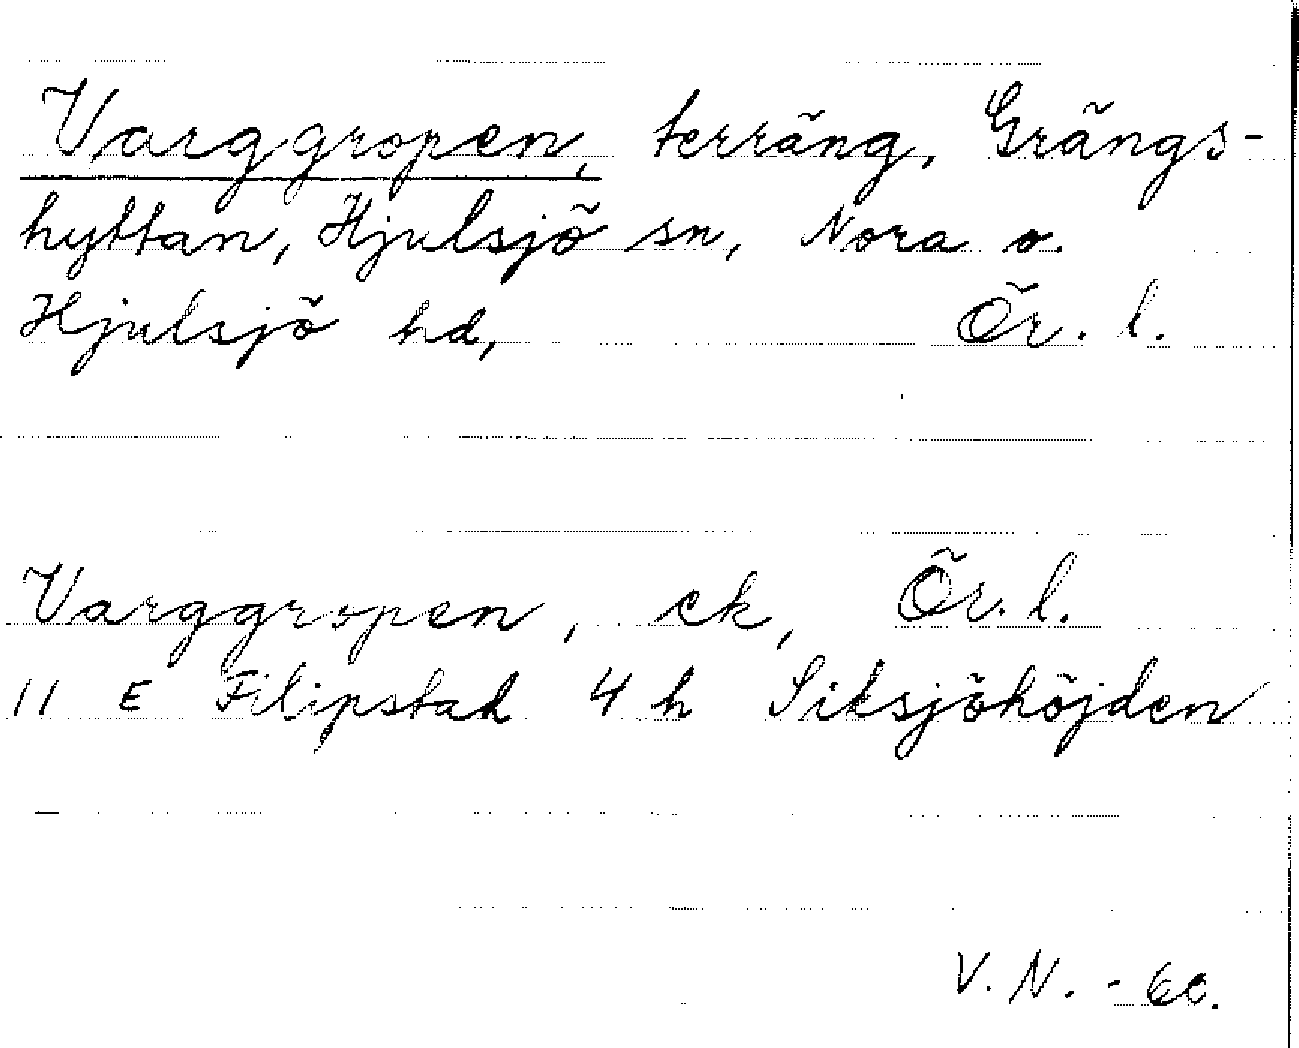 Varggropen, terräng, Grängs-
hyttan, Hjulsjö sn, Nora o.
Hjulsjö hd, Ör. l.
Varggropen, ek, Ör. l.
11 E Filipstad 4 h Siksjöhöjden
V. N. - 60.